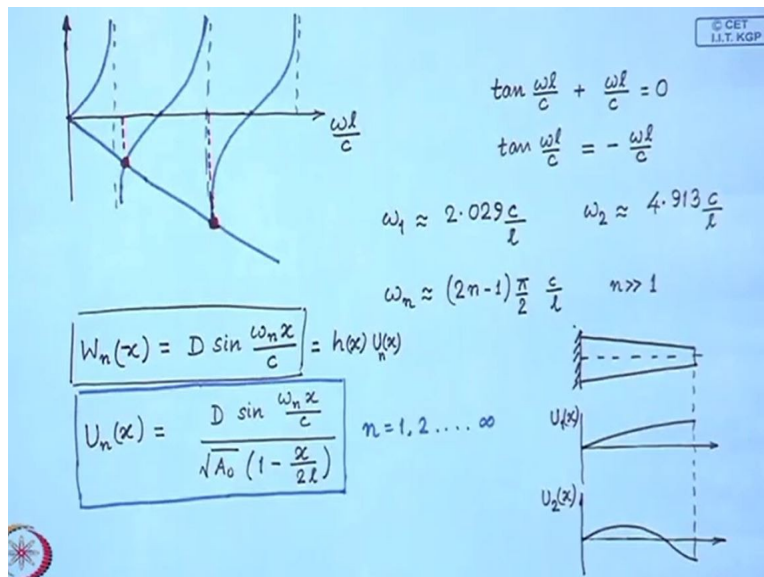 © CET
I.I.T. KGP
ωl/c
tan ωl/c + ωl/c = 0
tan ωl/c = - ωl/c
ω₁ ≈ 2.029 c/l   ω₂ ≈ 4.913 c/l
ωₙ ≈ (2n-1) π/2 c/l   n>>1
Wₙ(x) = D sin ωₙx/c = h(x) Uₙ(x)
Uₙ(x) = D sin ωₙx/c / √A₀ (1 - x/2l)   n = 1, 2 .... ∞
U₁(x)
U₂(x)